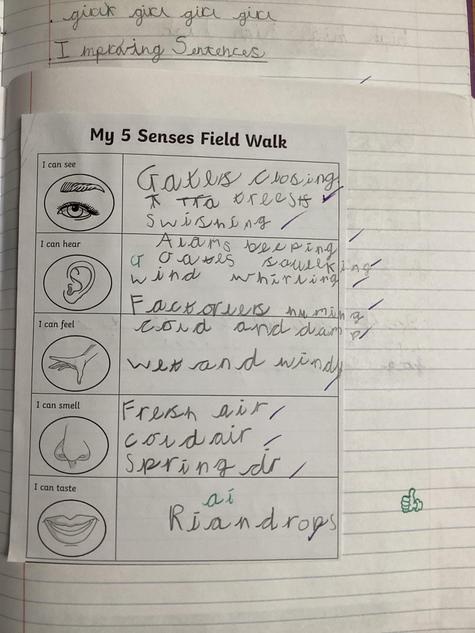 . gick gick gick gick
Improving Sentences
My 5 Senses Field Walk
I can see
Gates closing
trees
Swishing
I can hear
Alams beeping
G Gates squeeking
wind whirling
Factoriers huming
I can feel
cold and damp
wet and windy
I can smell
Fresh air
cold air
Spring air
I can taste
ai
Riandrops